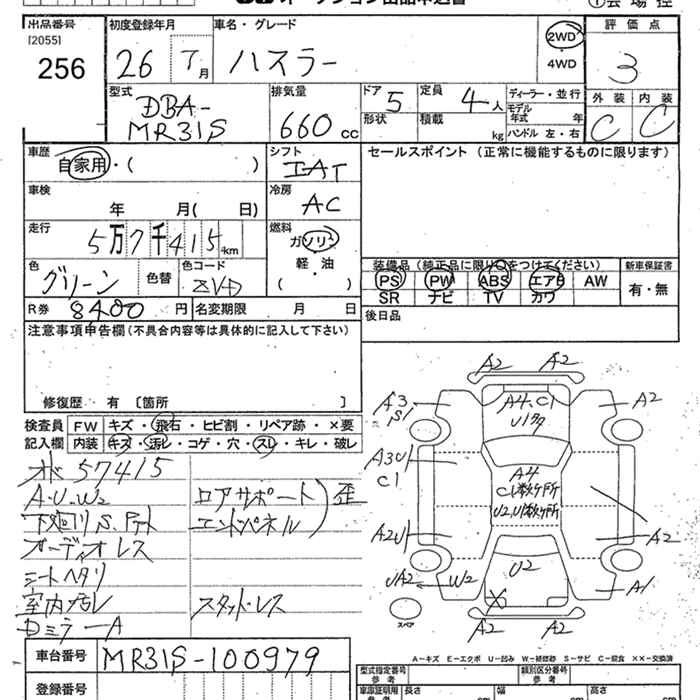 出品番号 初度登録年月 車名・グレード 2WD 評価点
[2055]
256 26 年 7 月 ハスラー 4WD 3
型式 排気量 ドア 定員 ディーラー・並行 外装 内装
DBA- 5 4 人 モデル年式 年 C C
MR31S 660 cc 形状 積載 kg ハンドル 左・右
車歴 シフト セールスポイント (正常に機能するものに限ります)
自家用・( ) IAT
車検 冷房
年 月( 日) AC
走行 燃料
5万7千415km ガソリン
色 色替 色コード 軽・油
グリーン ZVD ( )
装備品(純正品に限り〇をつけてください) 新車保証書
PS PW ABS エアB AW 有・無
SR ナビ TV カワ
R券 8400 円 名変期限 月 日 後日品
注意事項申告欄(不具合内容等は具体的に記入して下さい)
修復歴 有 〔箇所 〕
検査員 FW キズ・飛石・ヒビ割・リペア跡・×要
記入欄 内装 キズ・汚レ・コゲ・穴・スレ・キレ・破レ
57415
A・U・W2 ロアサポート 歪
下廻りS. エンドパネル
オーディオレス
シートヘタリ
室内汚レ スタットレス
Dミラ―A
A2 A2
A3 S1 A4.C1 A2
A3U C1 A4
C1数ヶ所
U2,U1数ヶ所
A2U A2
U2
UA2 W2 A1
X
スペア A2 A2
A-キズ E-エクボ U-凹み W-補修跡 S-サビ C-腐食 ××-交換済
車台番号 MR31S-100979
型式指定番号 参考 類別区分番号 参考
登録番号 長さ 幅 高さ